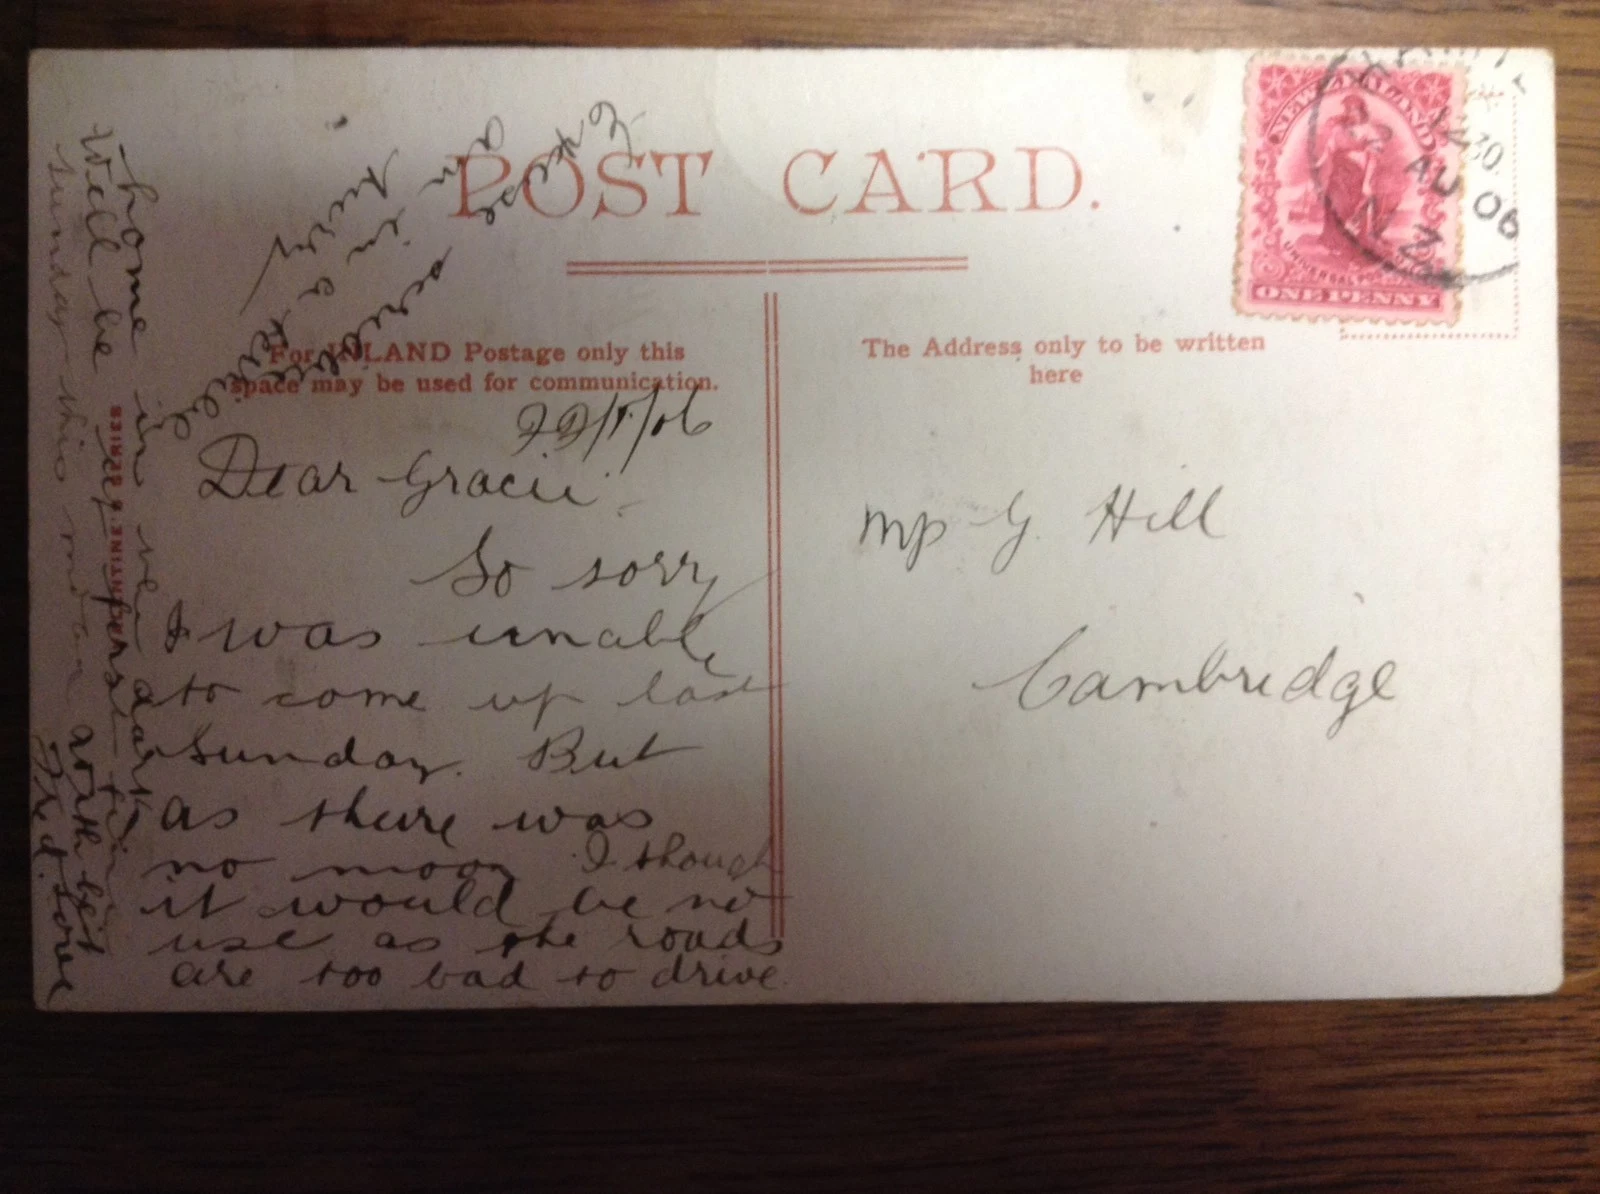 POST CARD.
For INLAND Postage only this
space may be used for communication.
The Address only to be written
here
NEW ZEALAND
UNIVERSAL POSTAGE
ONE PENNY
22 AU 06
N.Z
22/8/06
Dear Gracie
So sorry
I was unable
to come up last
Sunday. But
as there was
no moon I though
it would be no
use as the roads
are too bad to drive
home in the dark
Will be up first fine
Sunday this
with best
love
Fred.
Excuse
scribble
am in a
hurry
Mrs G. Hill
Cambridge
VALENTINE'S SERIES